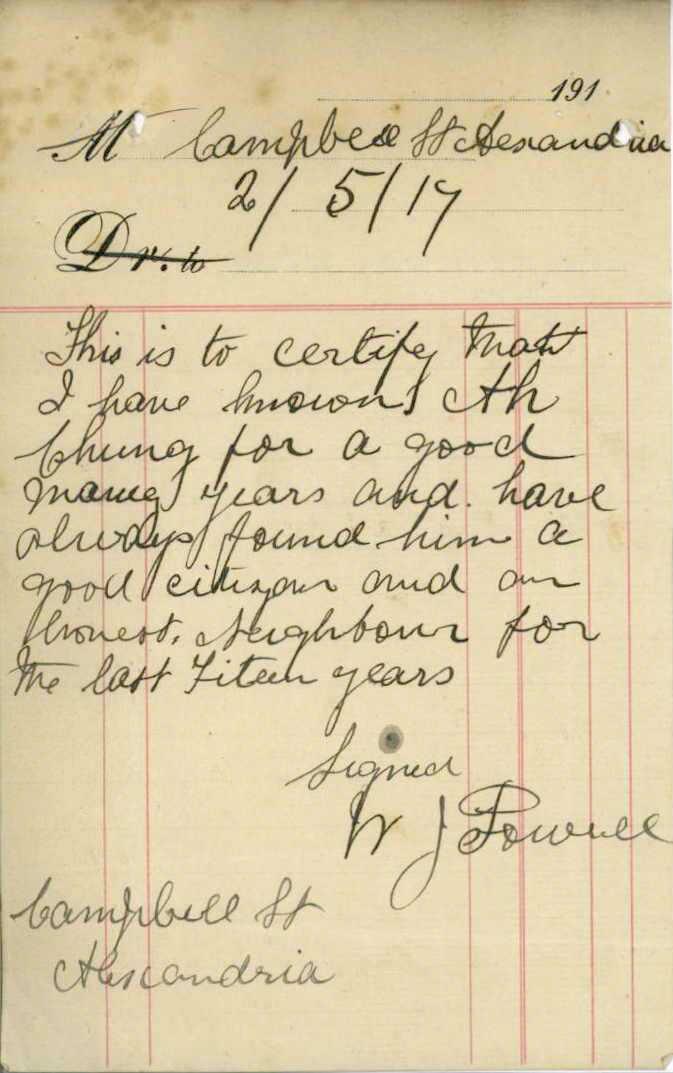 191
M Campbell St Alexandria
2/5/17
Dr. to
This is to certify that
I have known Ah
Chung for a good
many years and have
always found him a
good citizen and an
honest. Neighbour for
the last Fiteen years
Signed
W J Powell
Campbell St
Alexandria